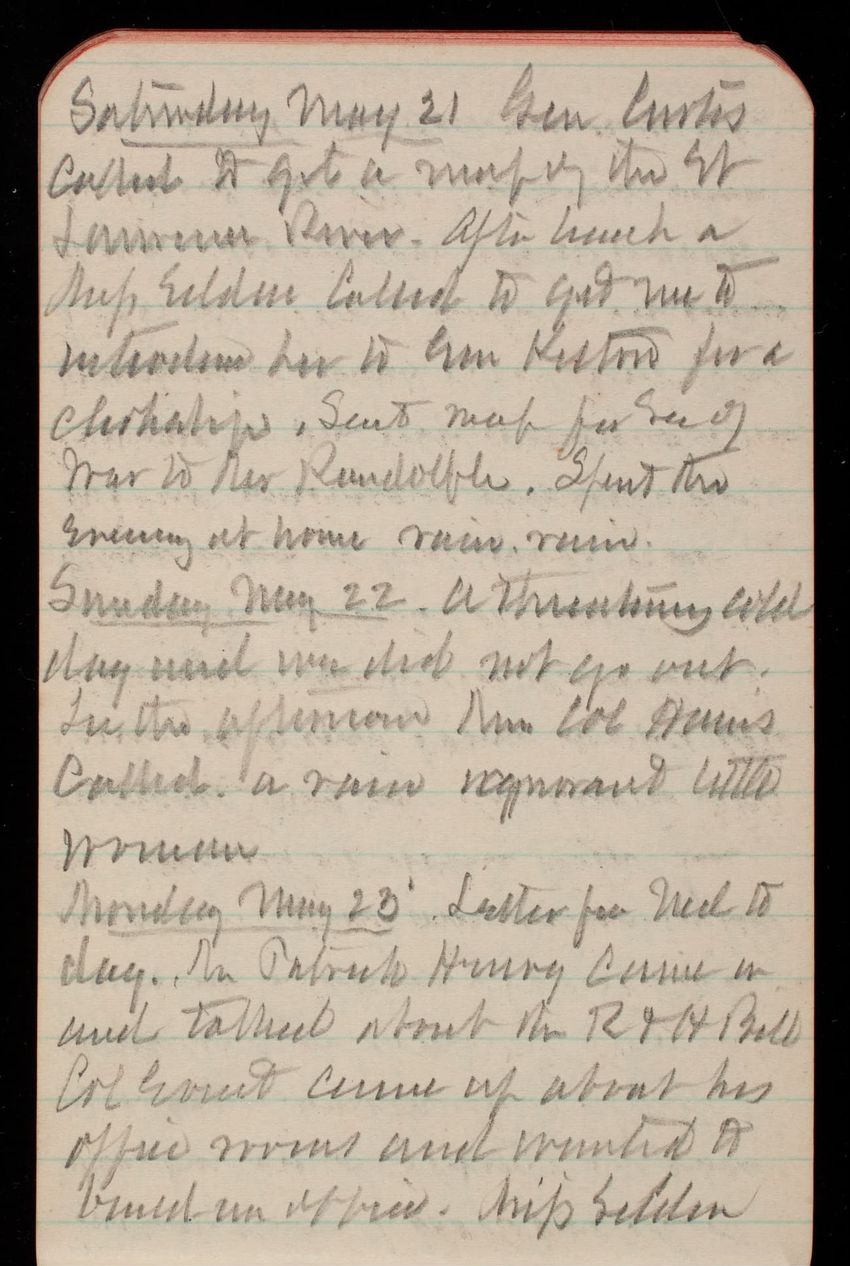 Saturday May 21 Gen. Curtis
Called to get a map of the St
Lawrence River. After lunch a
Miss Selden Called to get me to
introduce her to Gen for a
clerkship. Sent map for Sec of
War to Mr Randolph. Spent the
Evening at home rain. rain.
Sunday May 22. A threatening cold
day and we did not go out.
In the afternoon Mrs Col Harris
Called. a vain ignorant little
woman
Monday May 23. Letter from Ned to
day. Mr Patrick Henry came in
and talked about the R & H Bill
Col came up about his
office rooms and wanted to
build an office. Miss Selden